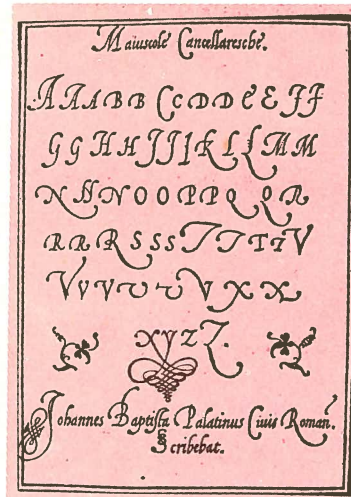 Maiuscole Cancellaresche.
A A A B B C C D D E E F F
G G H H I I I K L L M M
N N N O O P P Q Q R
R R R S S S T T T T V
V V V V V V X X
X Y Z Z.
Johannes Baptista Palatinus Ciuis Roman.
Scribebat.